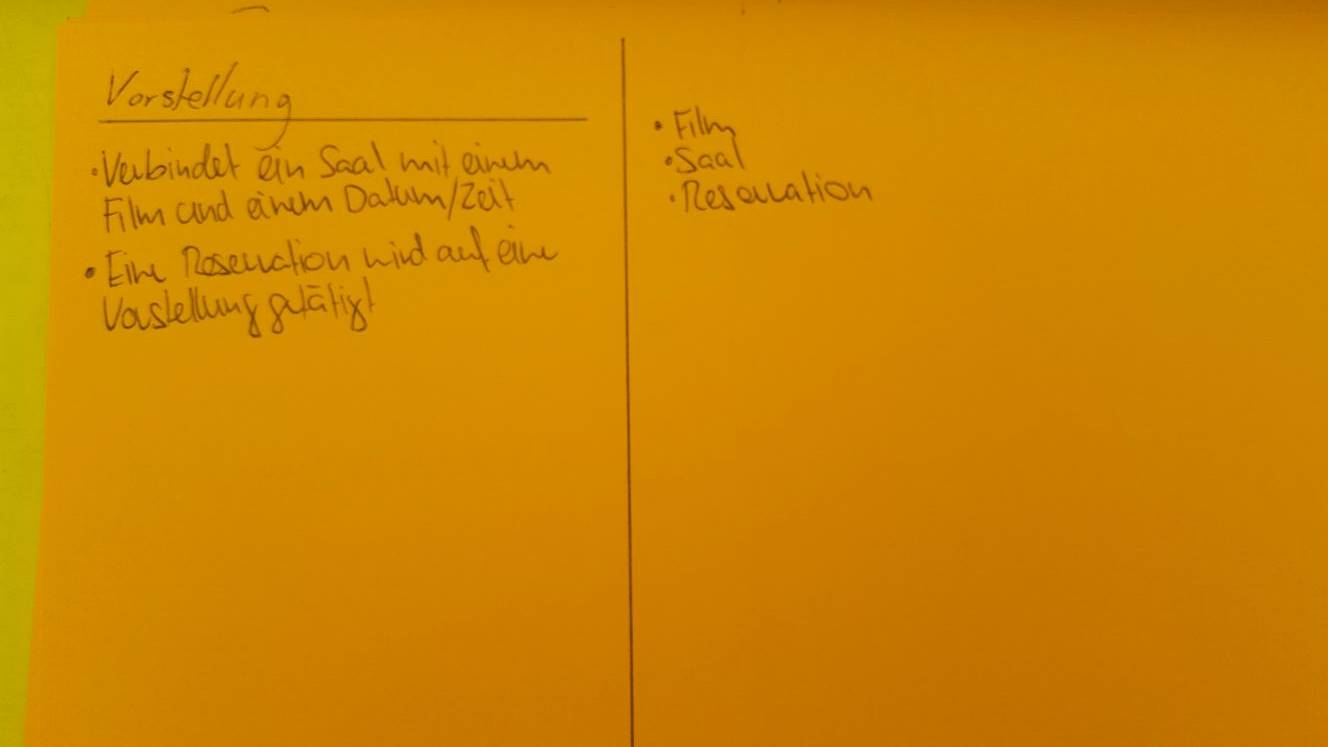 Vorstellung
• Verbindet ein Saal mit einem
Film und einem Datum/Zeit
• Eine Reservation wird auf eine
Vorstellung getätigt
• Film
• Saal
• Reservation